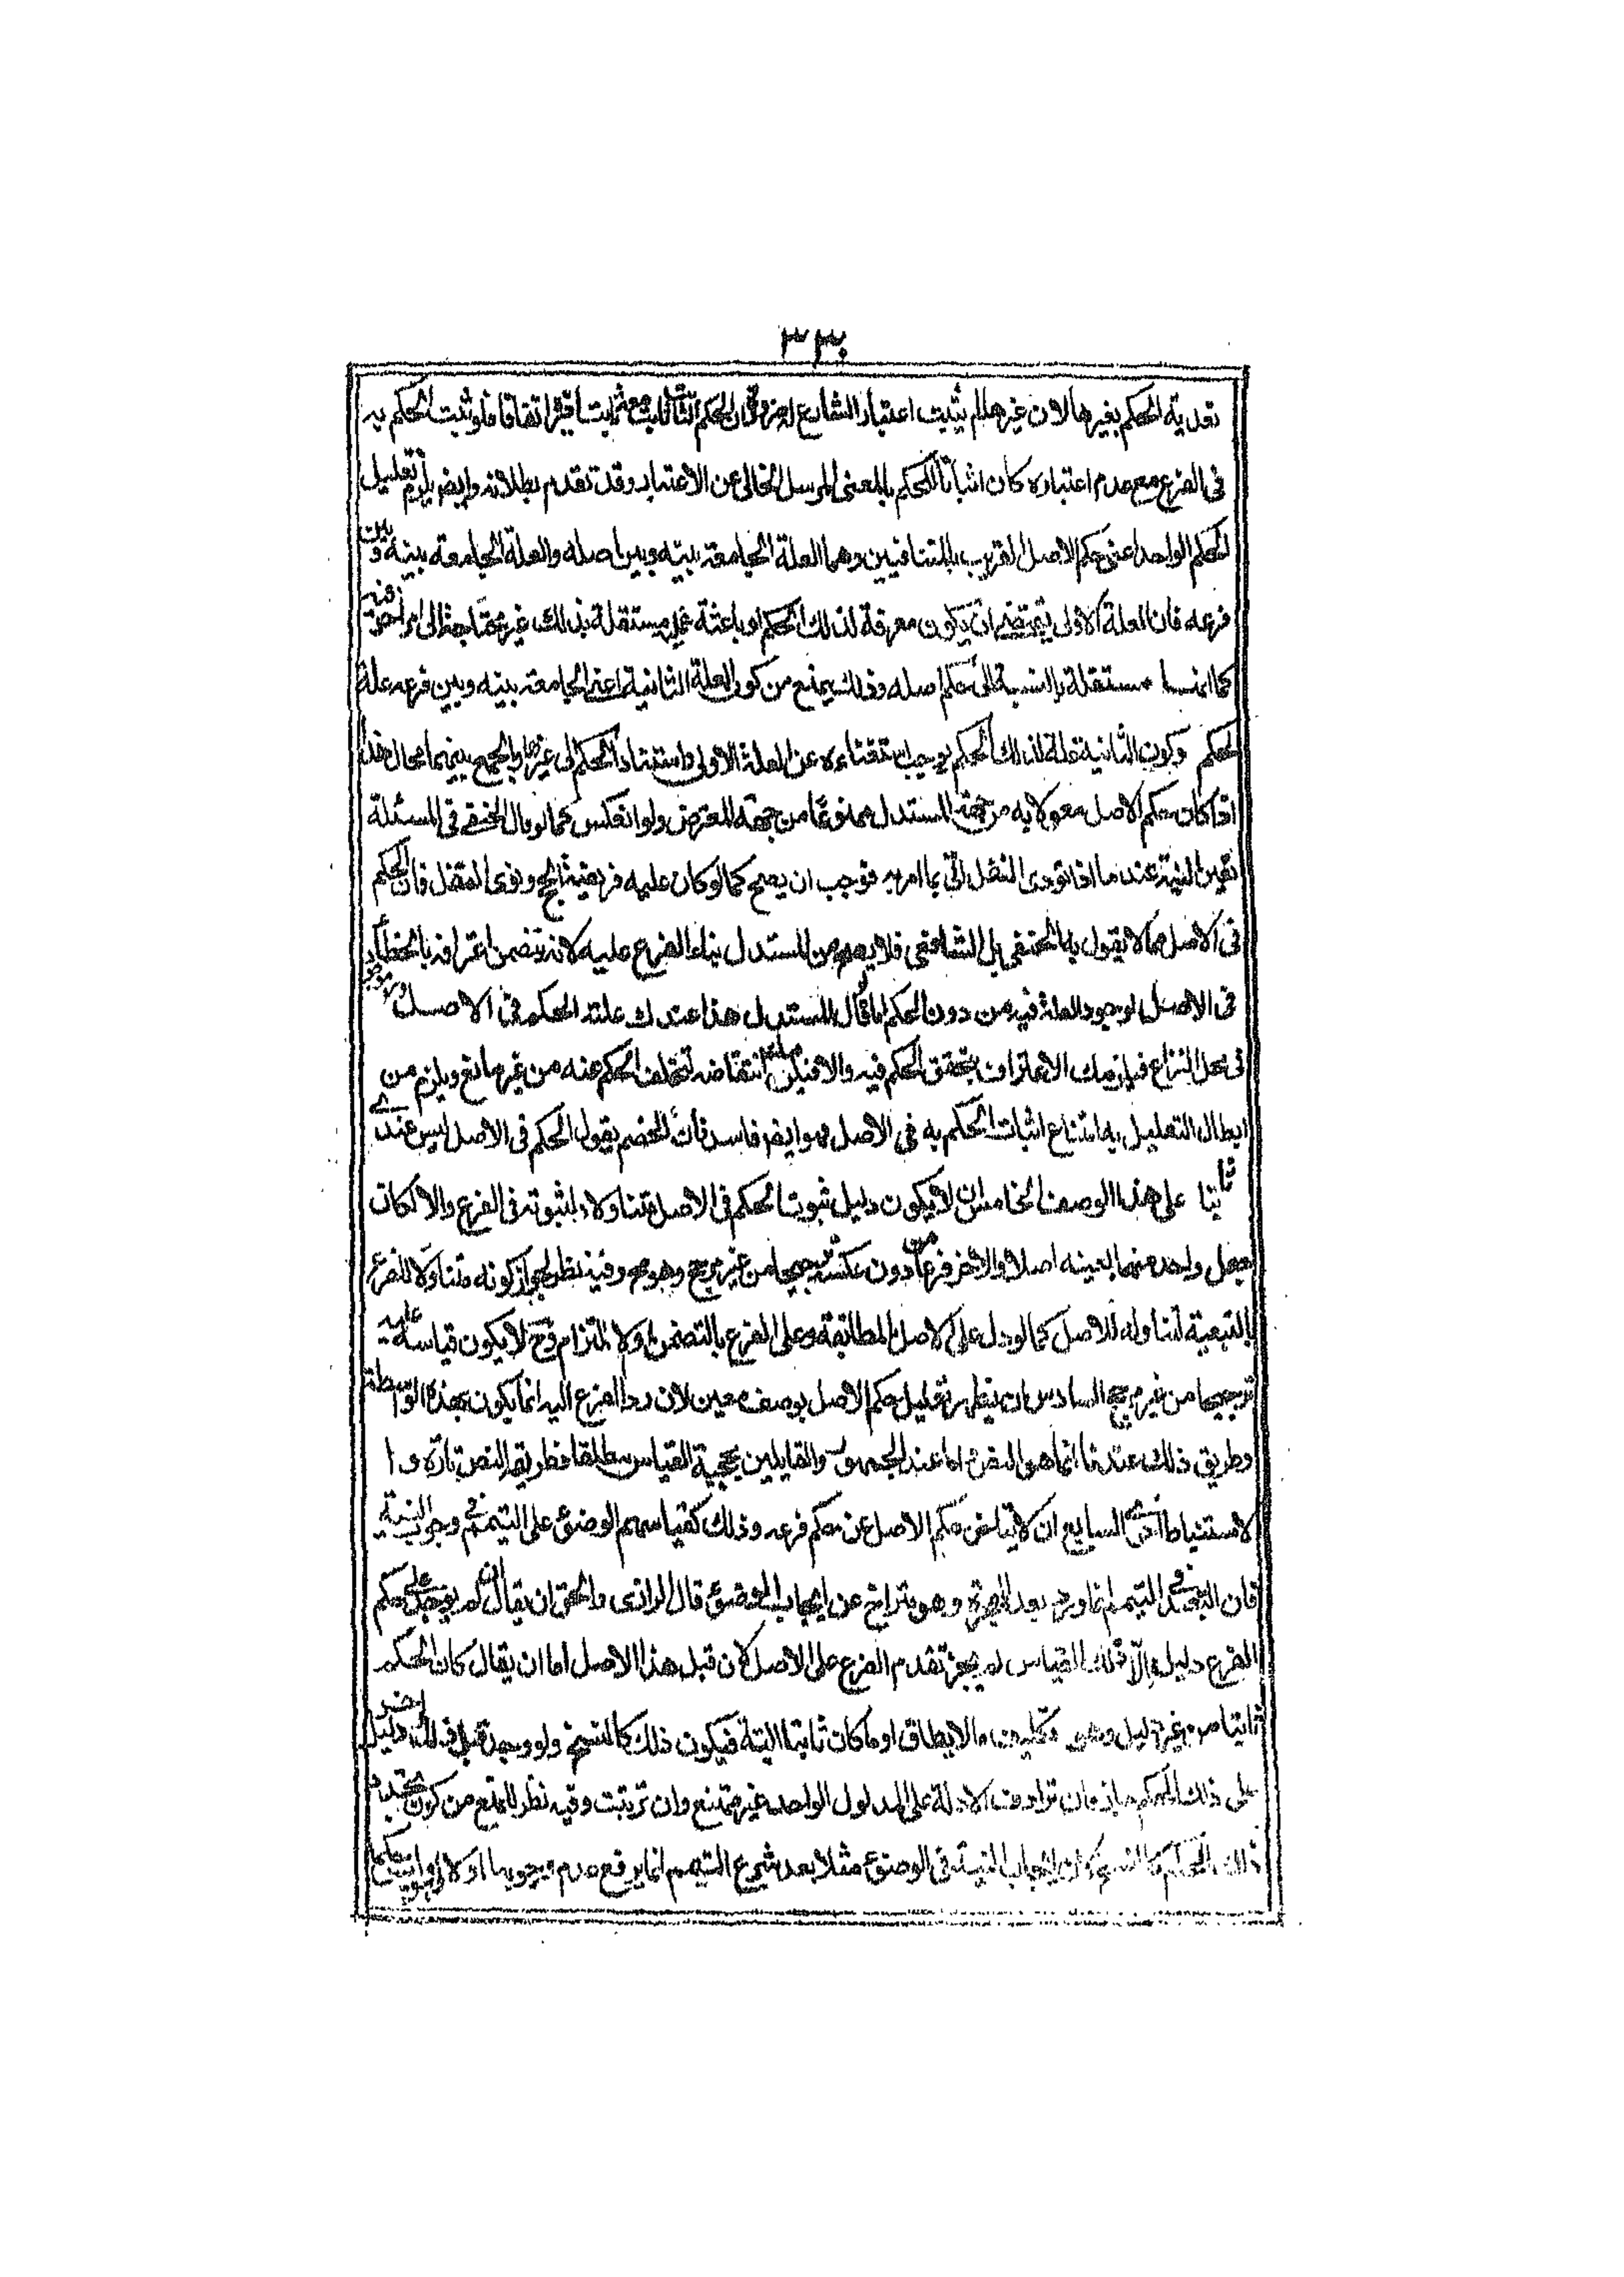 ٣٣٠
تعدية الحكم بغيرها لان غيرها لم يثبت اعتبار الشارع له ضرورة ان الحكم الثابت معه ثابت اتفاقا فلو ثبت الحكم به
فى الفرع مع عدم اعتباره كان اثباتا للحكم بالمعنى المرسل الخالى عن الاعتبار وقد تقدم بطلانه وايضا يلزم تعليل
الحكم الواحد اعنى حكم الاصل القريب بالمتنافيين وهما العلة الجامعة بينه وبين اصله والعلة الجامعة بينه وبين
فرعه فان العلة الاولى تقتضى ان يكون معرفة لذلك الحكم او باعثة عليه مستقلة بذلك غير محتاجة الى امر اخر فيه
كما انها مستقلة بالنسبة الى حكم اصله وذلك يمنع من كون العلة الثانية اعنى الجامعة بينه وبين فرعه علة
لحكم وكون الثانية علة لذلك الحكم يوجب استغناءه عن العلة الاولى واستناد الحكم الى غيرها والجمع بينهما محال هذا
اذا كان حكم الاصل مقولا به من جهة المستدل ممنوعا من جهة المعترض ولو انعكس كما لو قال الحنفى فى المسئلة
تعيين النية عند ما اذا نوى النفل اتى بما امر به فوجب ان يصح كما لو كان عليه فريضة الحج ونوى النفل فان الحكم
فى الاصل مما لا يقول به الحنفى بل الشافعى فلا يصح من المستدل بناء الفرع عليه لانه تضمن اعترافه بالخطأ
فى الاصل لوجود العلة فيه من دون الحكم اما لو قال المستدل هذا عندك علة الحكم فى الاصل وهو موجود
فى محل النزاع فيلزمك الاعتراف بتحقق الحكم فيه والا فيلزم انتقاضه لتخلف الحكم عنه من غير مانع ويلزم من
ابطال التعليل به امتناع اثبات الحكم به فى الاصل فهو ايضا فاسد فان للخصم يقول الحكم فى الاصل ليس عندى
ثابتا على هذا الوصف الخامس ان لا يكون دليل ثبوت الحكم فى الاصل متناولا لثبوته فى الفرع والا لكان
جعل واحد منهما بعينه اصلا والاخر فرعا من دون عكسه ترجيحا من غير مرجح وهو مح وفيه نظر لجواز كونه متناولا للفرع
بالتبعية لتناوله للاصل كما لو دل على الاصل بالمطابقة وعلى الفرع بالتضمن او الالتزام وح لا يكون قياسه عليه
ترجيحا من غير مرجح السادس ان يظهر تعليل حكم الاصل بوصف معين لان رد الفرع اليه انما يكون بهذه الواسطة
وطريق ذلك عندنا انما هو النص اما عند الجمهور والقايلين بحجية القياس مطلقا فطريقه النص تارة وا
لاستنباط اخرى السابع ان لا يتاخر حكم الاصل عن حكم فرعه وذلك كقياسهم الوضوء على التيمم فى وجوب النية
فان التعبد فى التيمم انما ورد بعد الهجرة وهو متراخ عن ايجاب الوضوء قال الرازى والحق ان يقال ان لم يوجد على حكم
الفرع دليل الا ذلك القياس لم يجز تقدم الفرع على الاصل لان قبل هذا الاصل اما ان يقال كان الحكم
ثابتا من غير دليل وهو تكليف ما لا يطاق او ما كان ثابتا البتة فيكون ذلك كالنسخ ولو وجد قبل ذلك دليل اخر
على ذلك الحكم جاز فان ترادف الادلة على المدلول الواحد غير ممتنع وان ترتبت وفيه نظر للمنع من كون تجديد
ذلك الحكم كالنسخ لان ايجاب النية فى الوضوء مثلا بعد شرع التيمم انما يرفع عدم وجوبها اولا